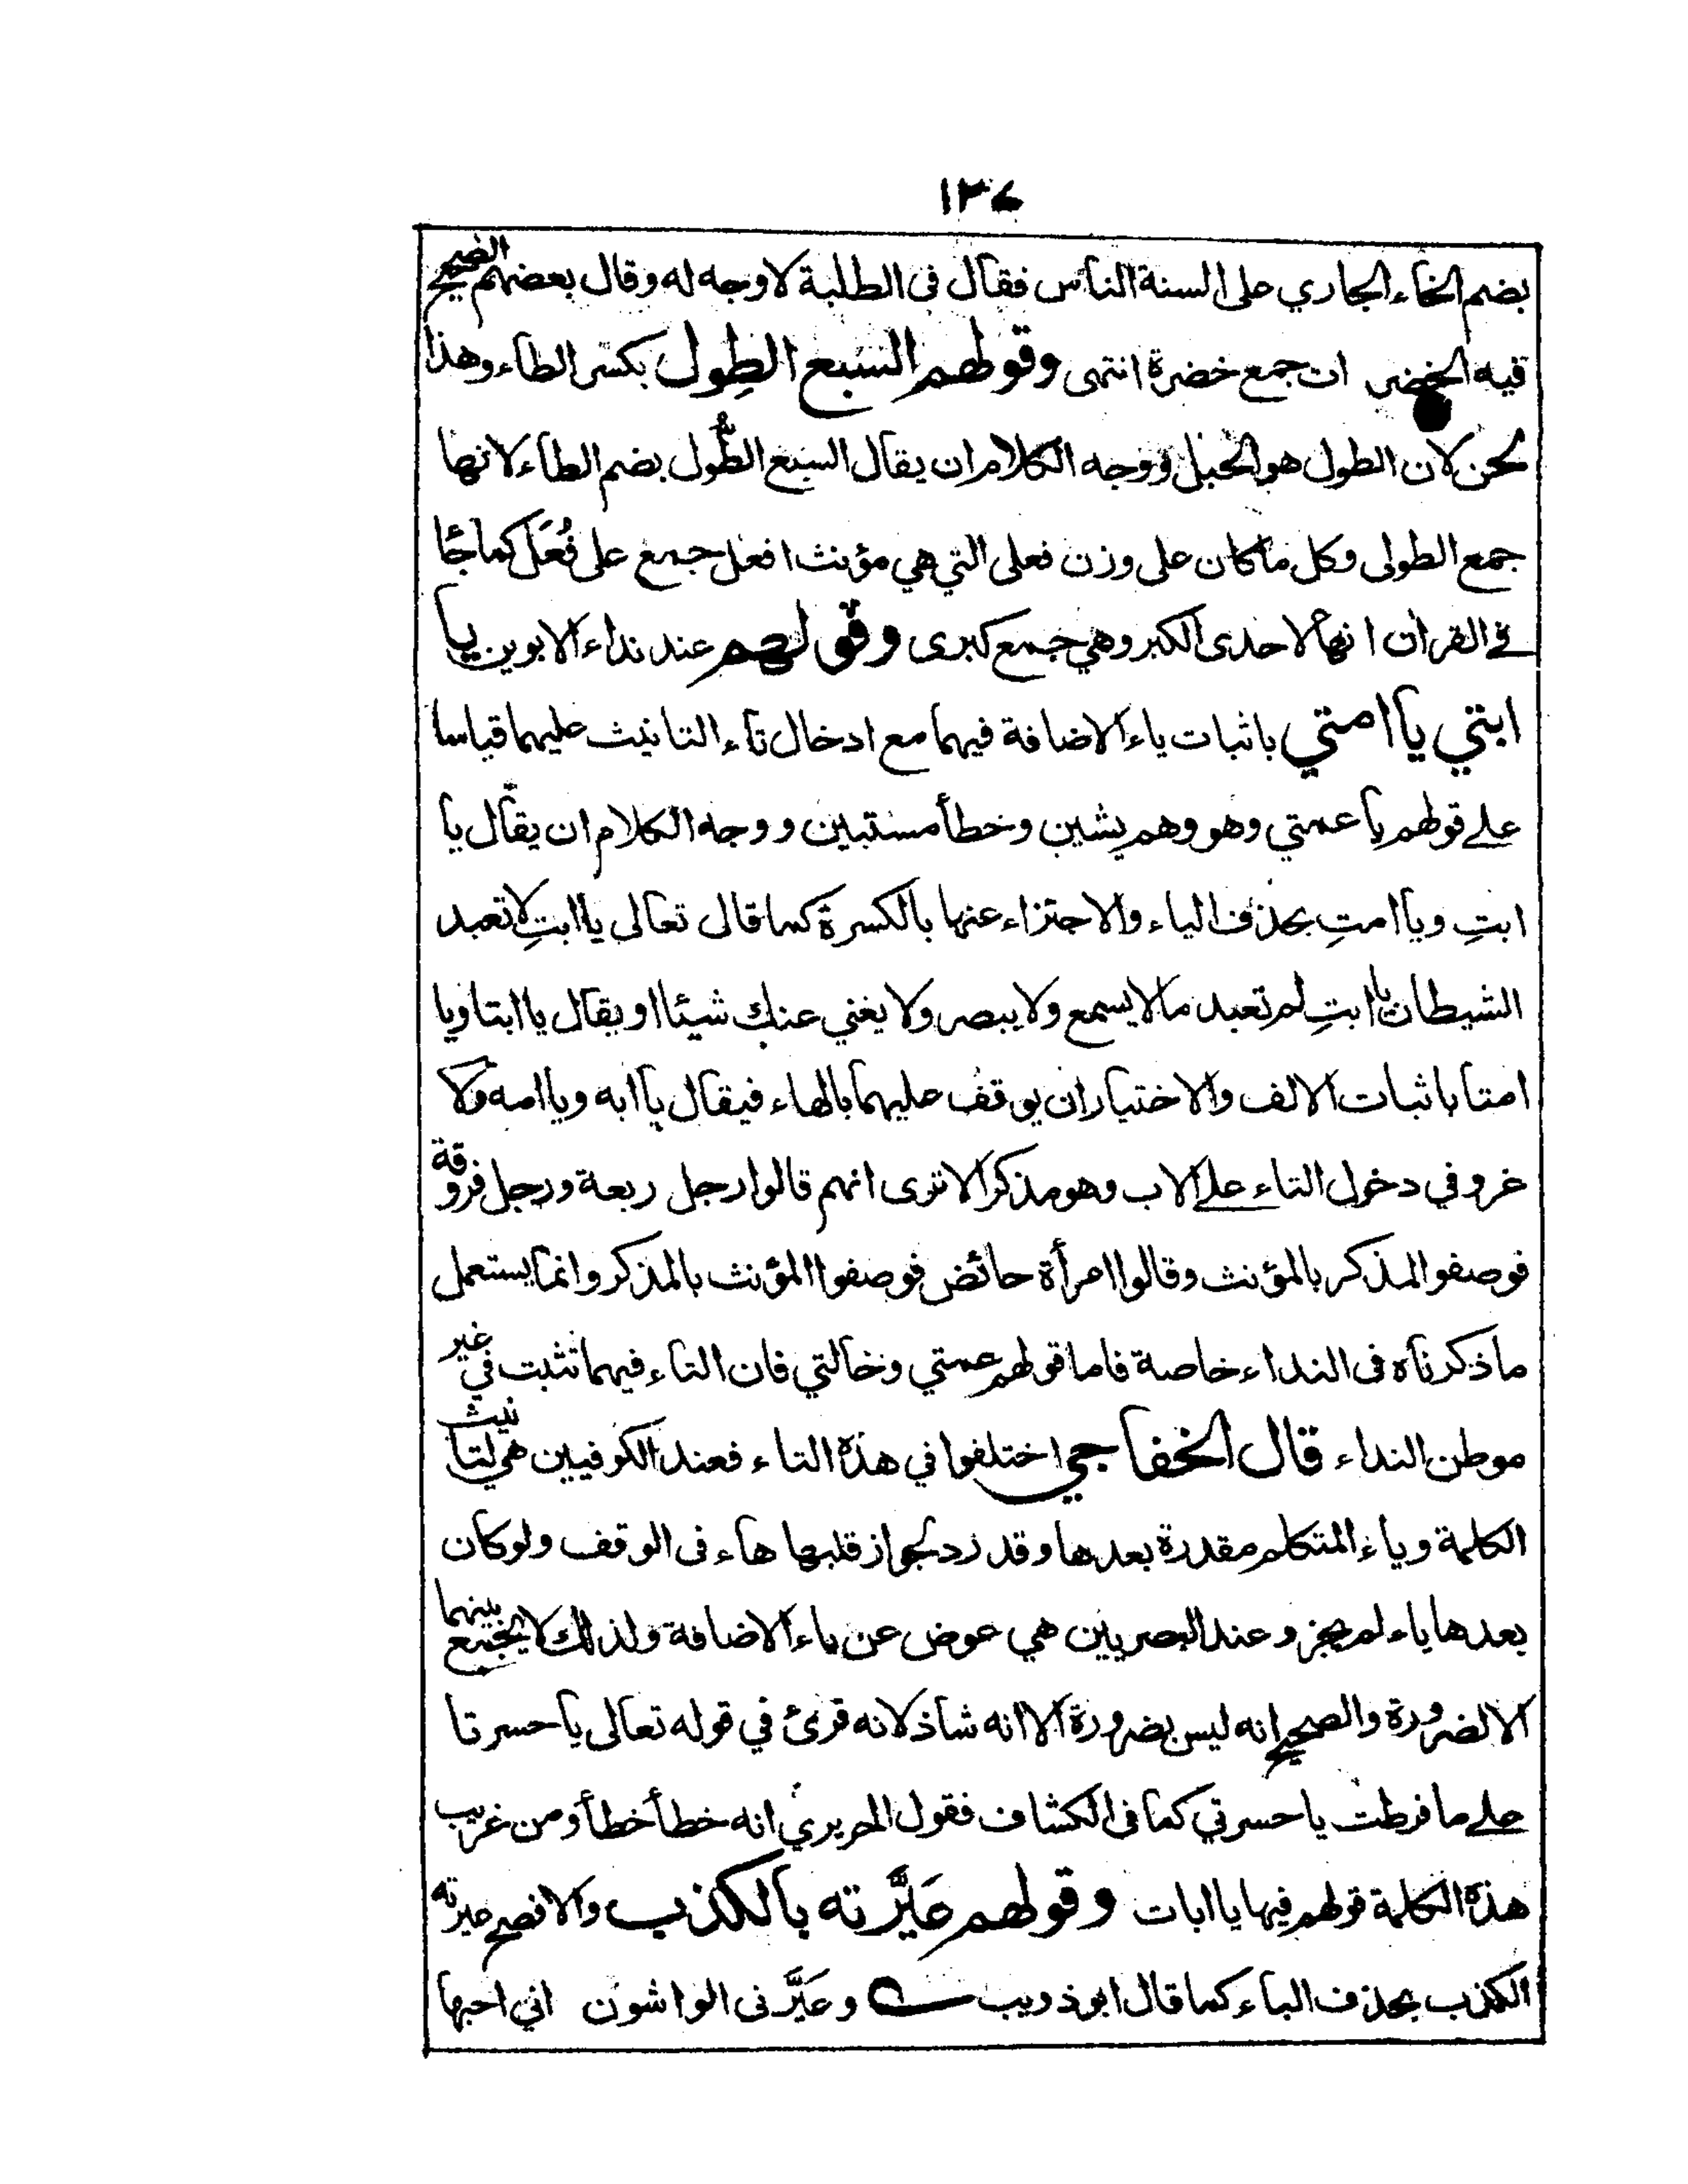 ١٣٧
بضم الخاء الجاري على السنة الناس فقال فى الطلبة لا وجه له وقال بعضهم الصحيح
فيه الخضر ات جمع خضرة انتهى وقولهم السبع الطِول بكسر الطاء وهذا
لحن لان الطول هو الحبل ووجه الكلام ان يقال السبع الطُّول بضم الطاء لانها
جمع الطولى وكل ما كان على وزن فعلى التي هي مؤنث افعل جمع على فُعَل كما جاء
في القران انها لاحدى الكبر وهي جمع كبرى وقولهم عند نداء الابوين يا
ابتي يا امتي باثبات ياء الاضافة فيهما مع ادخال تاء التانيث عليهما قياسا
على قولهم يا عمتي وهو وهم يشين وخطأ مستبين ووجه الكلام ان يقال يا
ابتِ ويا امتِ بحذف الياء والاجتزاء عنها بالكسرة كما قال تعالى يا ابتِ لا تعبد
الشيطان يا ابتِ لم تعبد ما لا يسمع ولا يبصر ولا يغني عنك شيئا او يقال يا ابتا ويا
امتا باثبات الالف والاختيار ان يوقف عليهما بالهاء فيقال يا ابه ويا امه ولا
غرو في دخول التاء على الاب وهو مذكر الا ترى انهم قالوا رجل ربعة ورجل فروقة
فوصفو المذكر بالمؤنث وقالوا امرأة حائض فوصفوا المؤنث بالمذكر وانما يستعمل
ما ذكرناه فى النداء خاصة فاما قولهم عمتي وخالتي فان التاء فيهما تثبت في غير
موطن النداء قال الخفاجي اختلفوا في هذه التاء فعند الكوفيين هي لتانيث
الكلمة وياء المتكلم مقدرة بعدها وقد رد لجواز قلبها هاء فى الوقف ولو كان
بعدها ياء لم يجز وعند البصريين هي عوض عن ياء الاضافة ولذلك لا يجتمع بينهما
الا لضرورة والصحيح انه ليس بضرورة الا انه شاذ لانه قرئ في قوله تعالى يا حسرتا
على ما فرطت يا حسرتي كما فى الكشاف فقول الحريري انه خطأ خطأ ومن غريب
هذه الكلمة قولهم فيها يا ابات وقولهم عَيَّرته بالكذب والافصح عيرته
الكذب بحذف الباء كما قال ابو ذويب وعَيَّرنى الواشون اني احبها